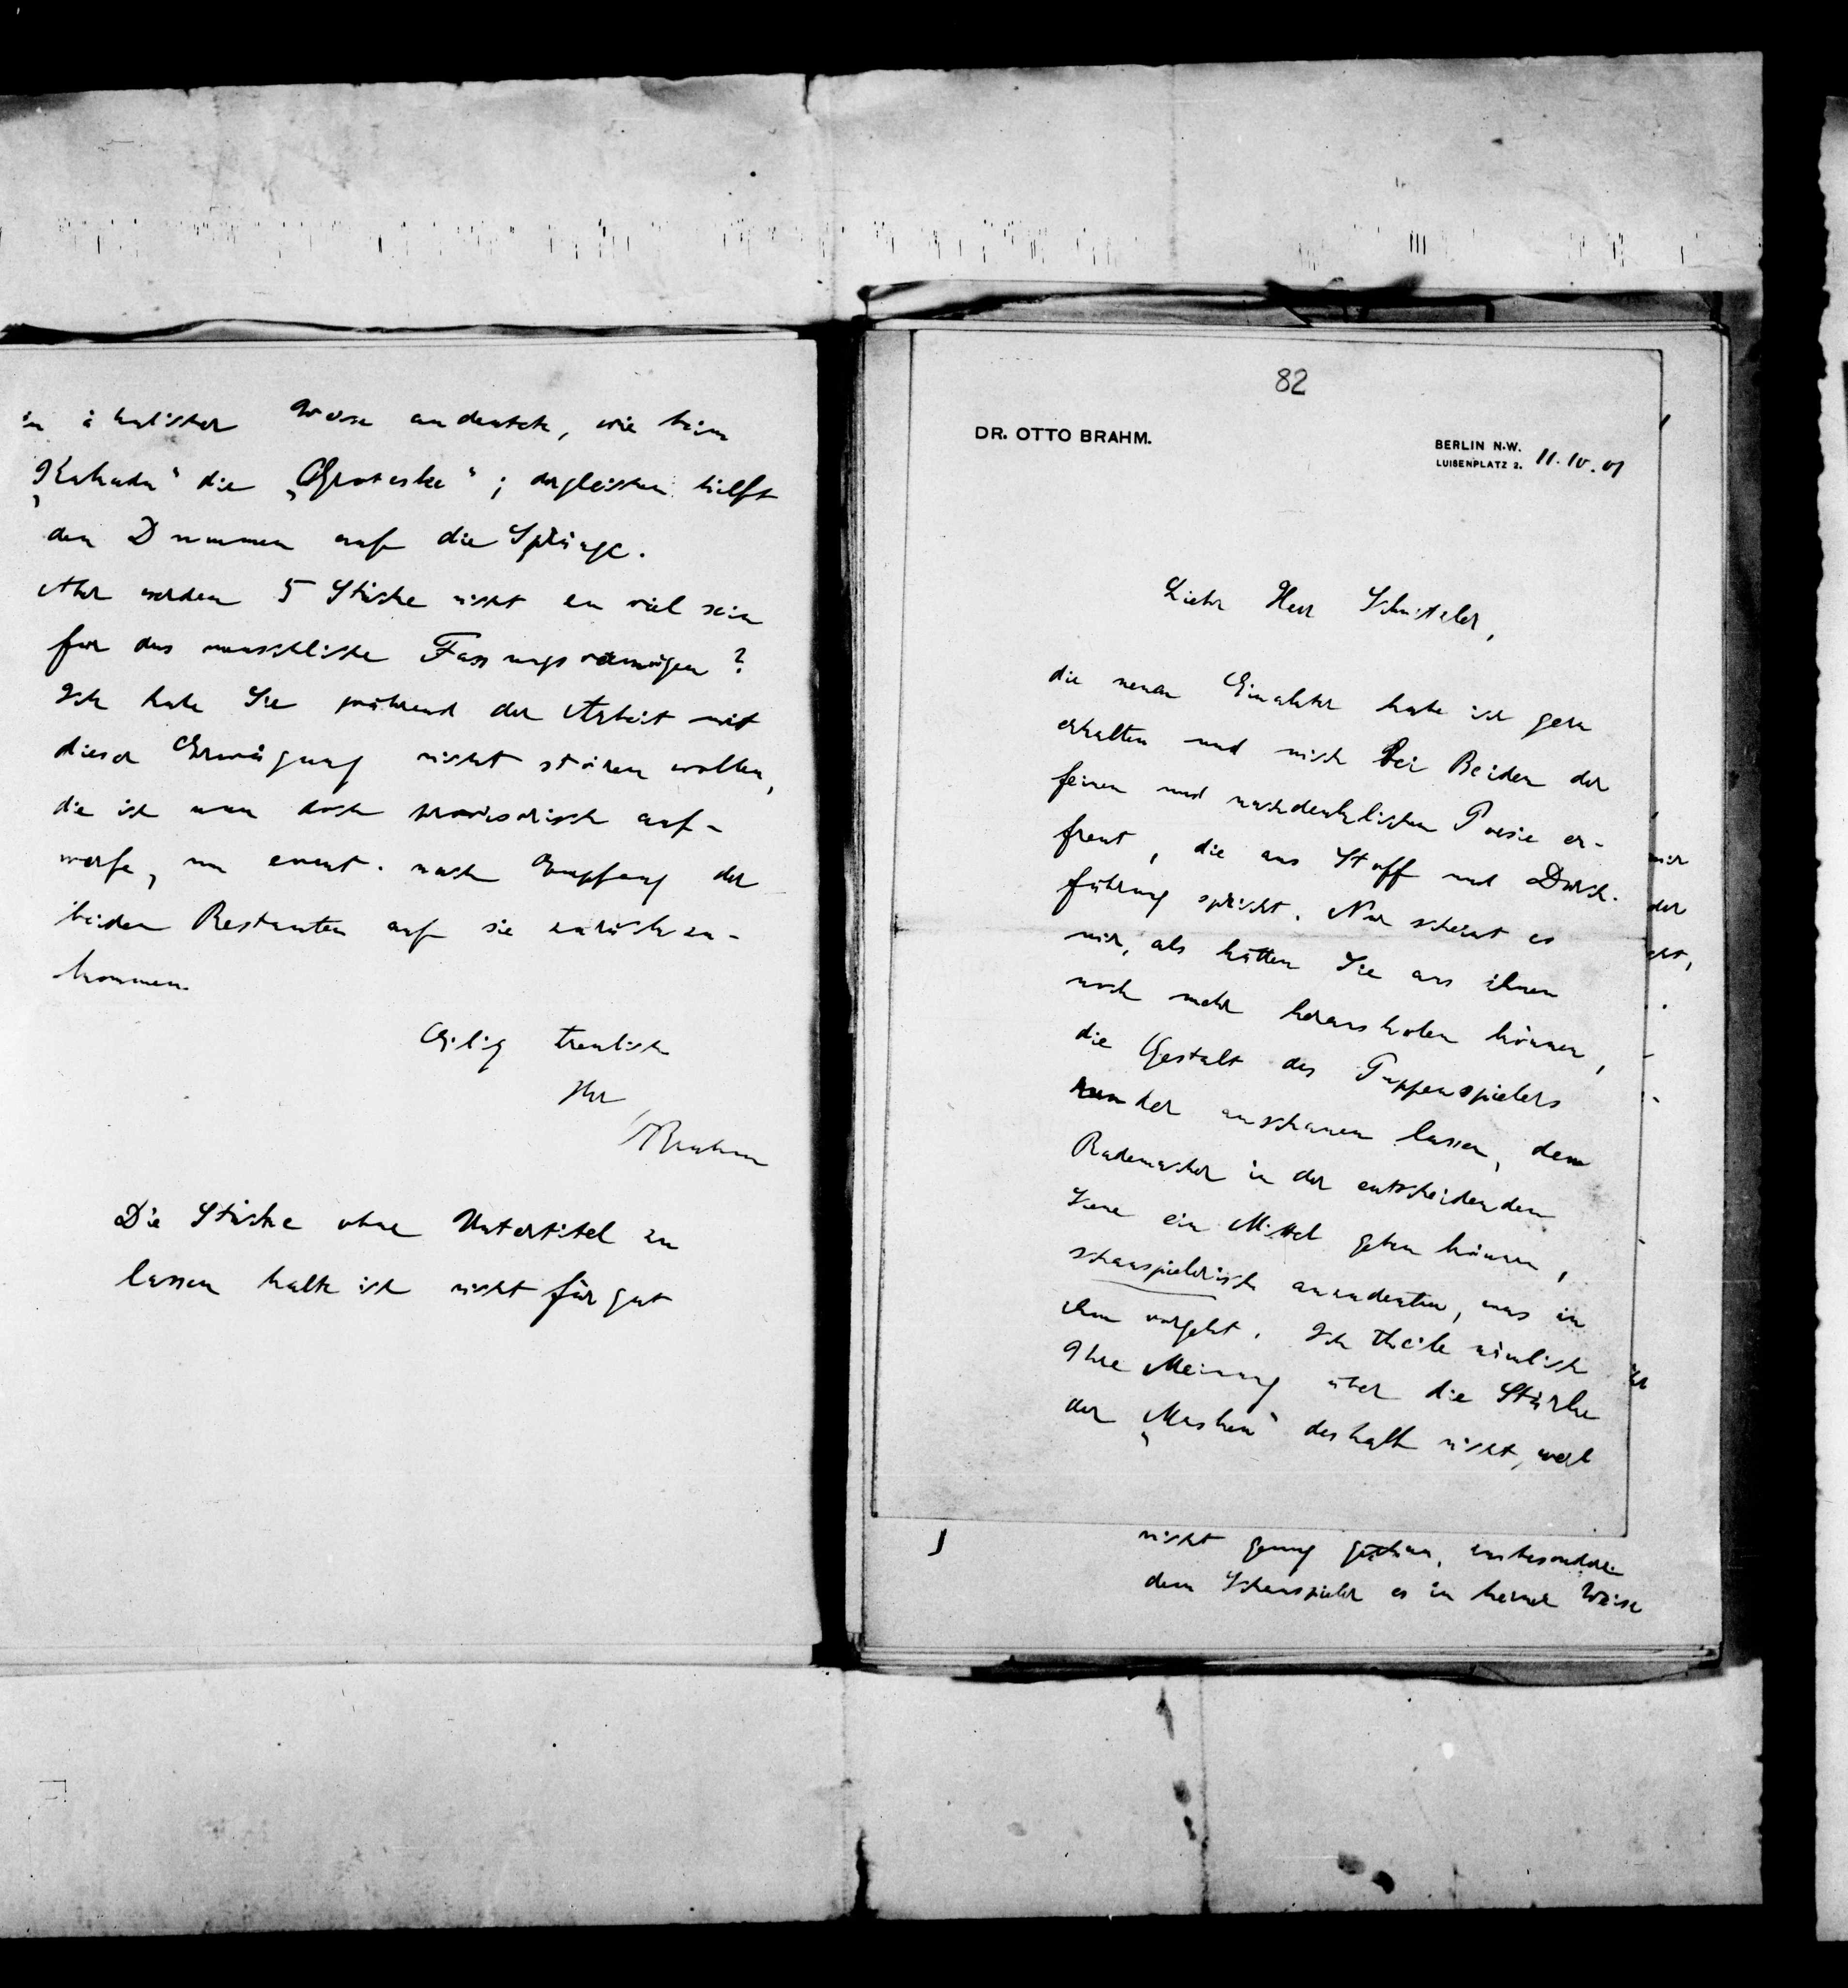 in ähnlicher Weise andeutete, wie beim
„Kakadu“ die „Groteske“; dergleichen hilft
den Dummen auf die Sprünge.
Aber werden 5 Stücke nicht zu viel sein
für das menschliche Fassungsvermögen?
Ich habe Sie während der Arbeit mit
dieser Erwägung nicht stören wollen,
die ich nun doch provisorisch auf-
werfe, um event. nach Empfang der
beiden Restanten auf sie zurückzu-
kommen.
Eilig treulich
Ihr
OBrahm
Die Stücke ohne Untertitel zu
lassen halte ich nicht für gut
82
DR. OTTO BRAHM.
BERLIN N.W.
LUISENPLATZ 2. 11.10.01
Lieber Herr Schnitzler,
die neuen Einakter habe ich gern
erhalten und mich bei Beiden der
feinen und nachdenklichen Poesie er-
freut, die aus Stoff und Durch-
führung spricht. Nur scheint es
mir, als hätten Sie aus ihnen
noch mehr herausholen können,
die Gestalt des Puppenspielers
runder anschauen lassen, dem
Rademacher in der entscheidenden
Scene ein Mittel geben können,
schauspielerisch anzudeuten, was in
ihm vorgeht. Ich theile nämlich
Ihre Meinung über die Stärke
der „Masken“ deshalb nicht, weil
mir
der
nicht genug gethan, insbesondere
dem Schauspieler es in keiner Weise